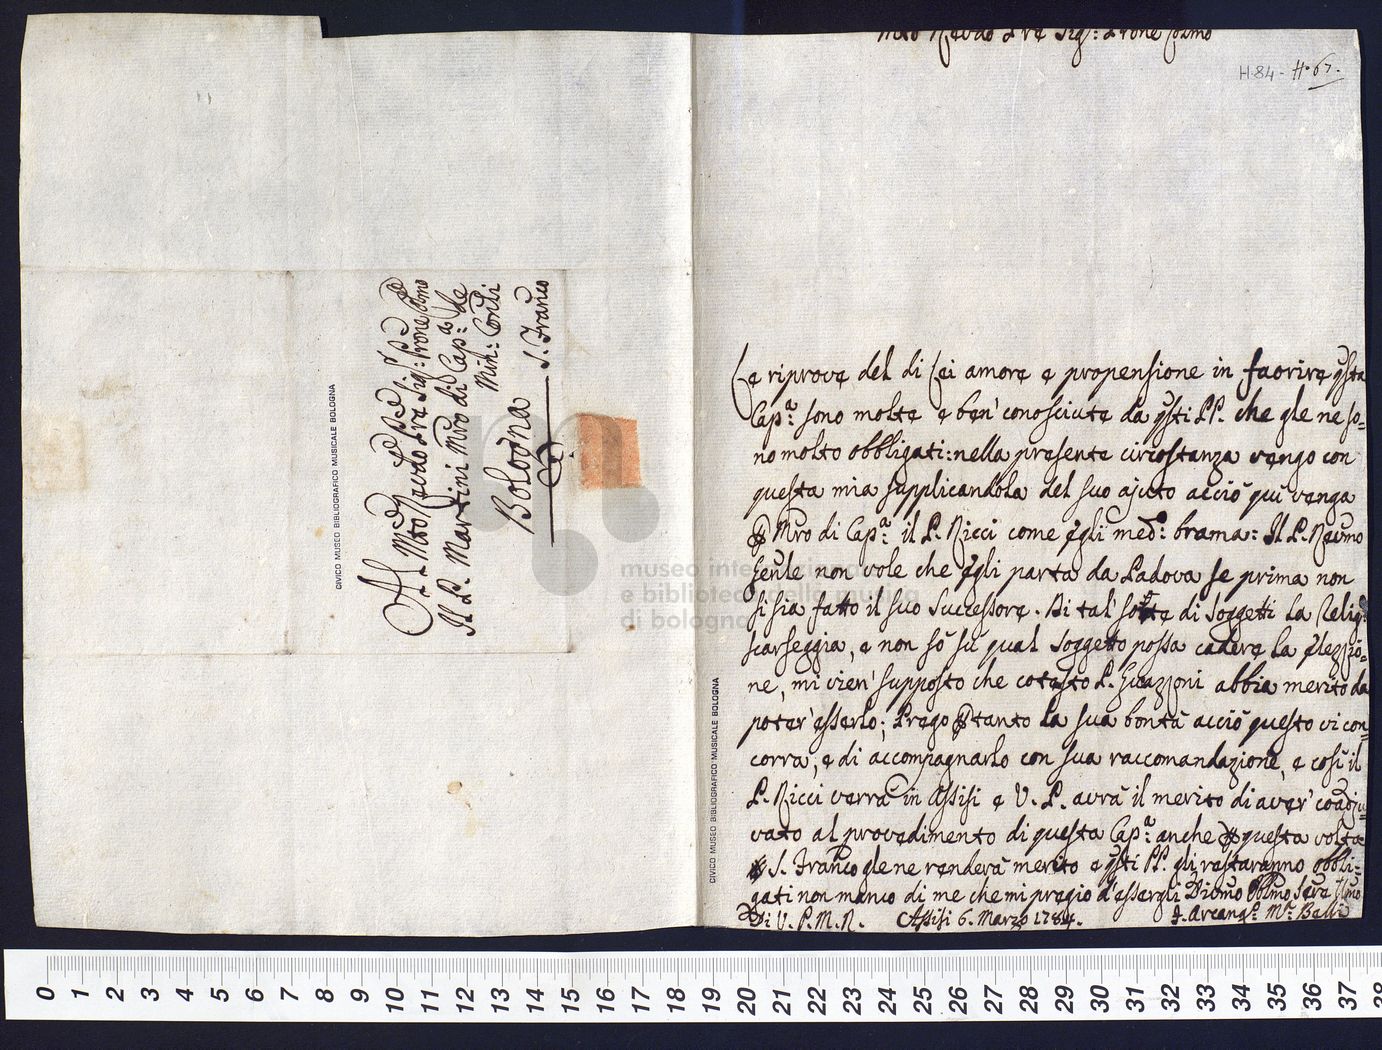 Al Mto Revdo Pre Sig: Prone Colmo
Il P. Martini Mro di Capa: de
Min: Conli
Bologna S. Franco
CIVICO MUSEO BIBLIOGRAFICO MUSICALE BOLOGNA
Mto Revdo Pre Sig: Prone Colmo
H-84- H. 67.
Le riprove del di Lei amore e propensione in faorire qsta
Capa: sono molte e ben' conosciute da qsti PP. che gle ne so=
no molto obbligati: nella presente circostanza vengo con
questa mia supplicandola del suo ajuto acciò qui venga
ꝑ Mro di Capa: il P. Ricci come Egli med: brama: Il P. Revmo
Genle non vole che Egli parta da Padova se prima non
si sia fatto il suo Successore. Di tali sorte di Soggetti la Relig:
scarseggia, e non sò sù qual soggetto possa cadere la Elezzio=
ne, mi vien' supposto che cotesto P. Guazzoni abbia merito da
poter' esserlo; Prego ꝑtanto la sua bontà acciò questo vi con=
corra, e di accompagnarlo con sua raccomandazione, e così il
P. Ricci verrà in Assisi e V. P. avrà il merito di aver' coadju=
vato al provedimento di questa Capa: anche ꝑ questa volta
ꝑ S. Franco gle ne renderà merito e qsti PP. gli restaranno obbli=
gati non manco di me che mi pregio d'essergli Divmo Obblmo Serve
Di V. P. M. R. Assisi 6. Marzo 1784. F. Arcango: Ma: Belli
CIVICO MUSEO BIBLIOGRAFICO MUSICALE BOLOGNA
museo internazionale
e biblioteca della musica
di bologna
0 1 2 3 4 5 6 7 8 9 10 11 12 13 14 15 16 17 18 19 20 21 22 23 24 25 26 27 28 29 30 31 32 33 34 35 36 37 38